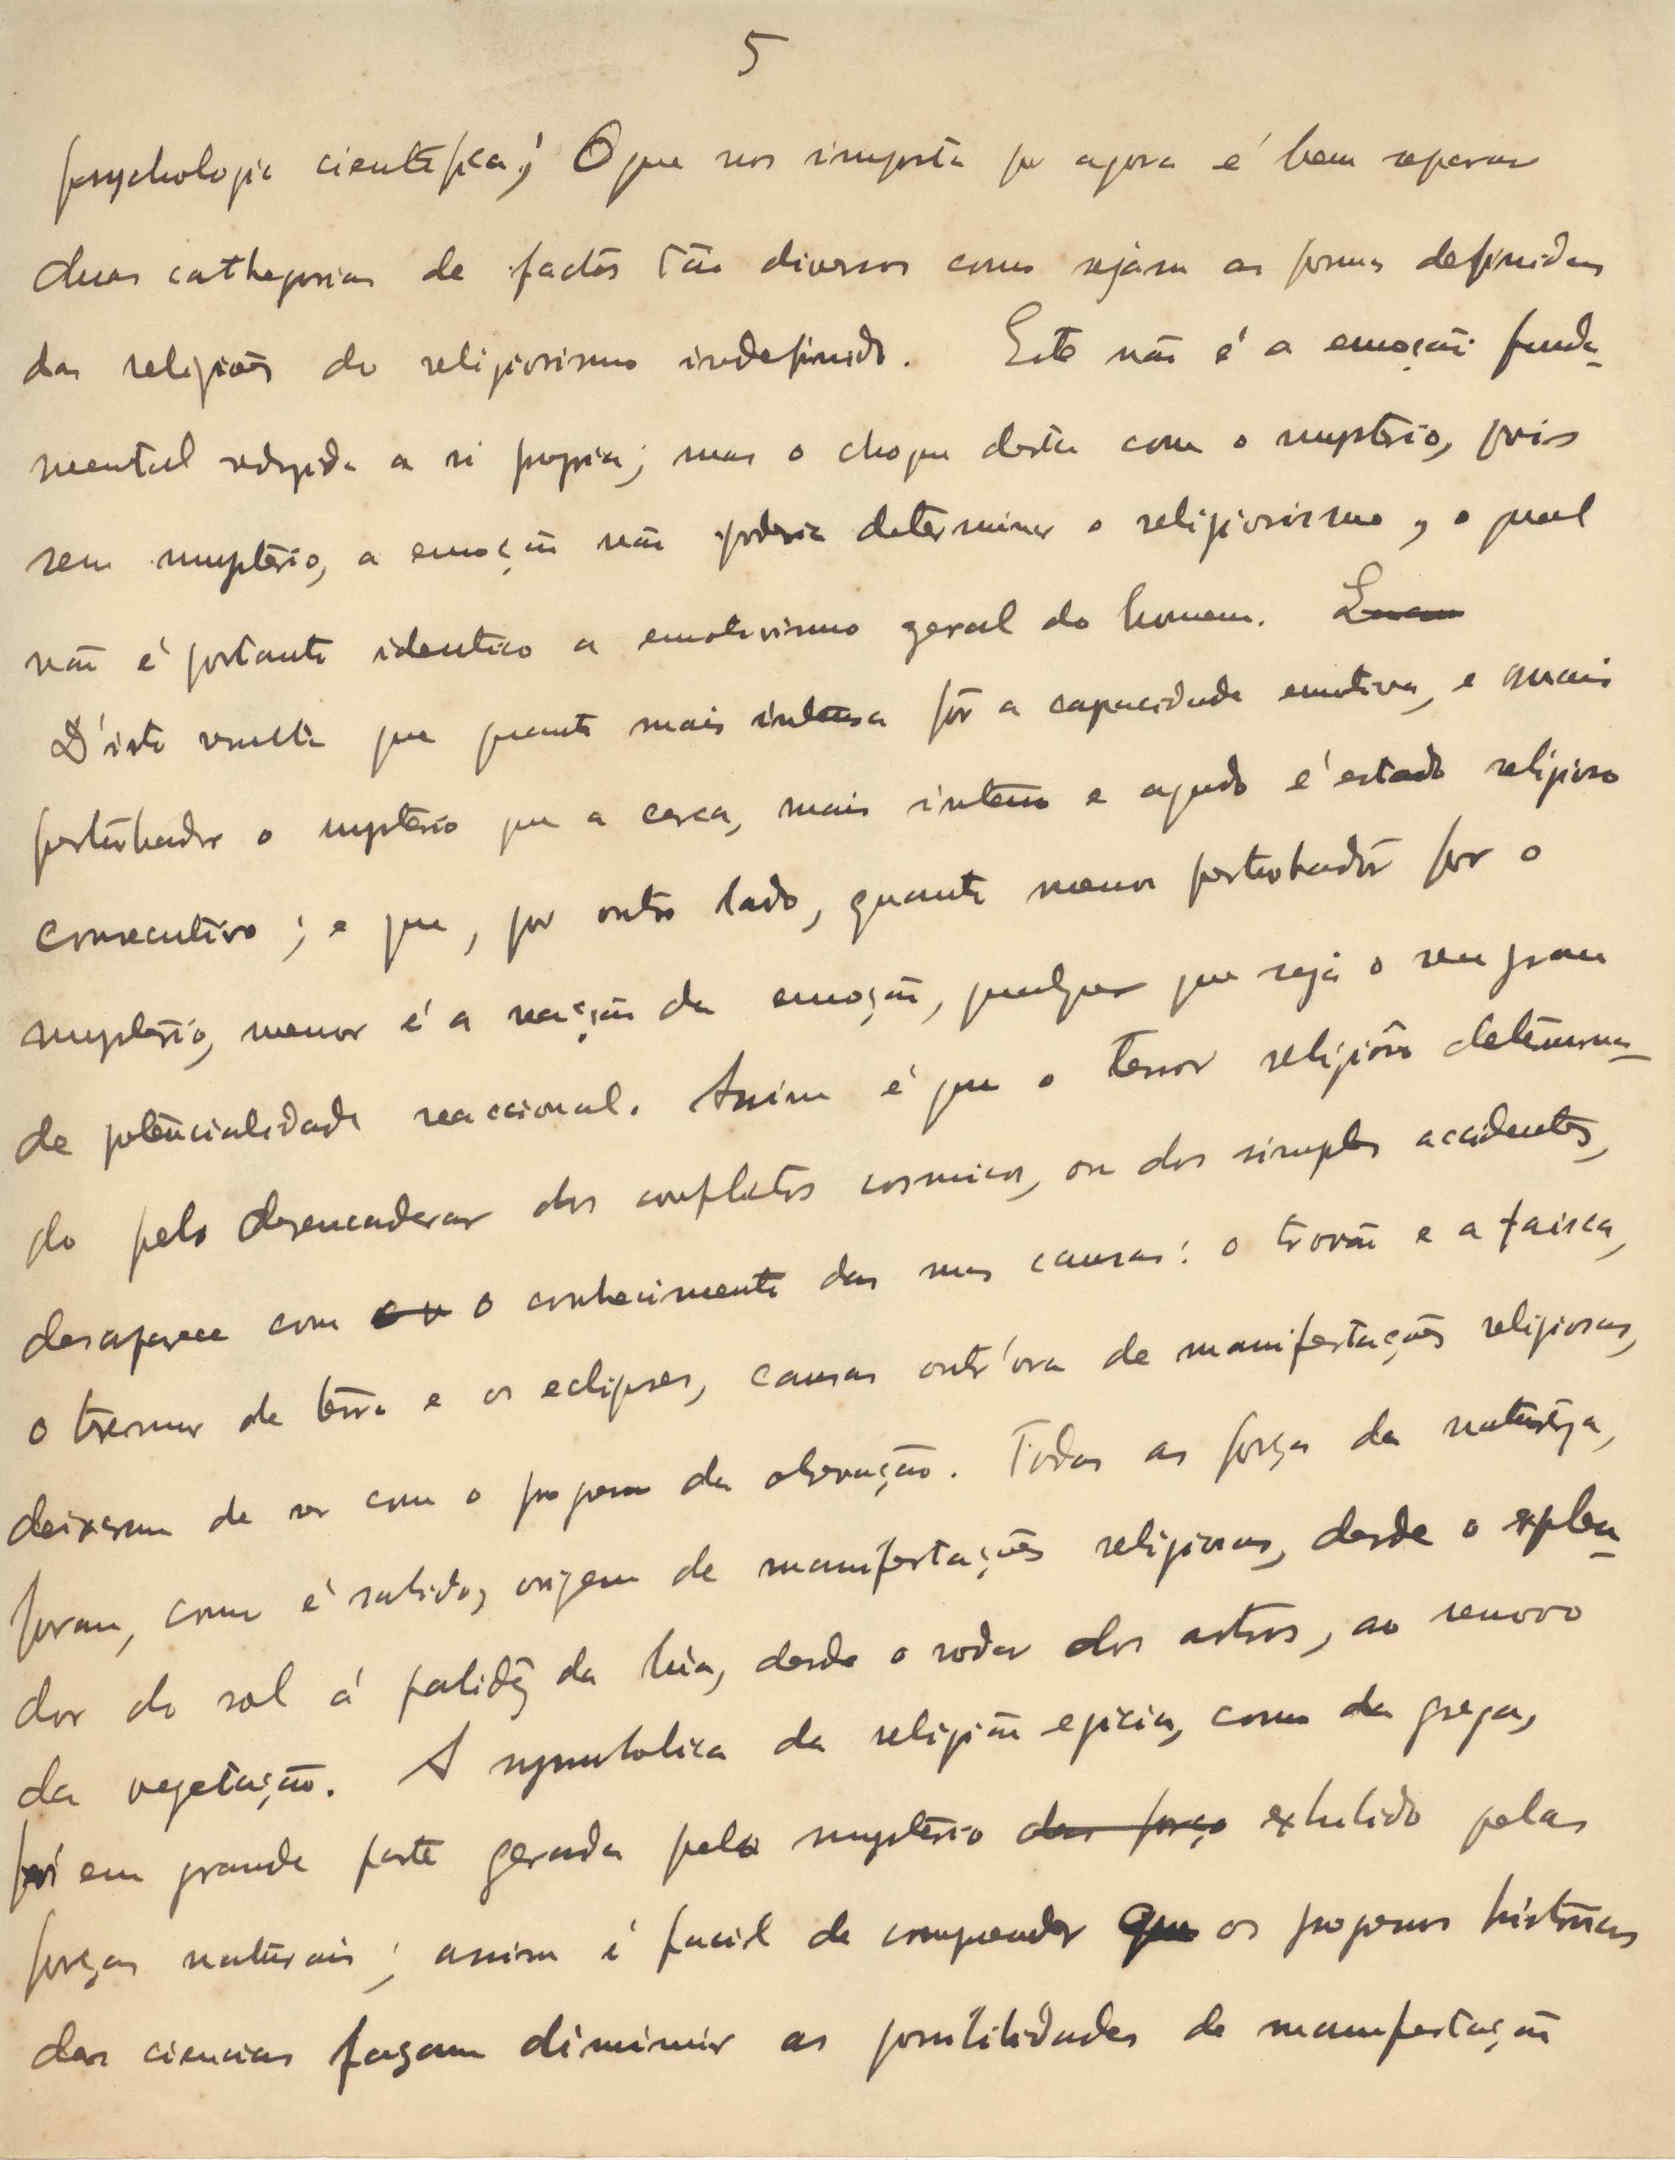 5
psychologia cientifica; O que nos importa por agora é bem separar
duas cathegorias de factos tão diversos como sejam as formas definidas
das religiões do religiosismo indefinido. Este não é a emoção funda-
mental redusida a si propria; mas o choque desta com o mysterio, pois
sem mysterio, a emoção não poderia determinar o religiosismo, o qual
não é portanto identico a emotivismo geral do homem.
D'isto resulta que quanto mais intensa fôr a capacidade emotiva, e mais
perturbador o mysterio que a cerca, mais intenso e agudo é estado religioso
consecutivo; e que, por outro lado, quanto menos perturbadôr for o
mysterio, menor é a reacção da emoção, qualquer que seja o seu grau
de potencialidade reaccional. Assim é que o terror religioso determina-
do pelo desencadear dos conflictos cosmicos, ou dos simples accidentes,
desaparece com o conhecimento das suas causas: o trovão e a faisca,
o tremor de terra e os eclipses, causas outr'ora de manifestações religiosas,
deixaram de ser com o progresso da observação. Todas as forças da natureza,
foram, como é sabido, origem de manifestações religiosas, desde o esplen-
dor do sol á palidez da lua, desde o rodar dos astros, ao renovo
da vegetação. A symbolica da religião egicia, como da grega,
foi em grande parte gerada pelo mysterio das forças exhibido pelas
forças naturais; assim é facil de compreender que os progressos históricos
das ciencias façam diminuir as possibilidades de manifestação